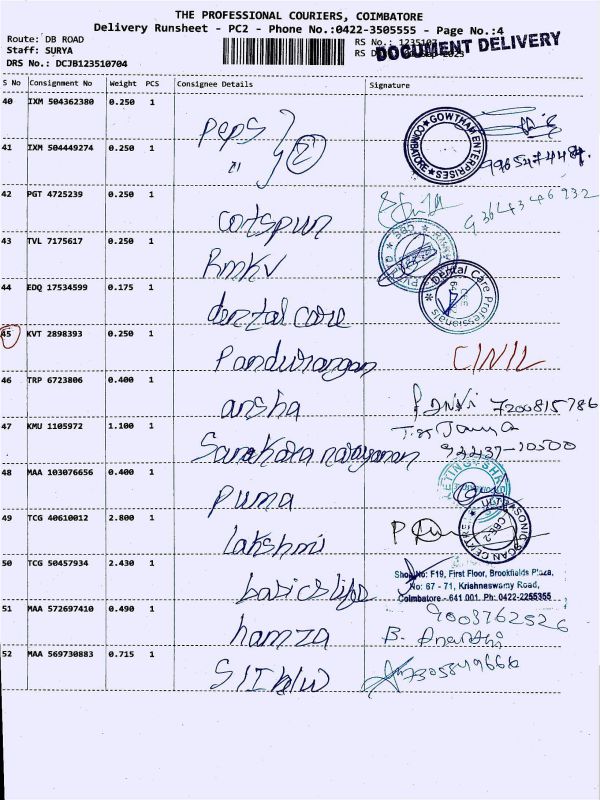 THE PROFESSIONAL COURIERS, COIMBATORE
Delivery Runsheet - PC2 - Phone No.:0422-3505555 - Page No.:4
Route: DB ROAD
Staff: SURYA
DRS No.: DCJB123510704
RS No.: 1235107
RS D
DOCUMENT DELIVERY
S No Consignment No Weight PCS Consignee Details Signature
40 IXM 504362380 0.250 1 peps
GOWTHAM ENTERPRISES COIMBATORE
41 IXM 504449274 0.250 1 2
42 PGT 4725239 0.250 1 cotspun
43 TVL 7175617 0.250 1 Rmkv
44 EDQ 17534599 0.175 1 dental care
Dental Care Professionals
45 KVT 2898393 0.250 1 Pandurangan CINIL
46 TRP 6723806 0.400 1 arsha 7200815786
47 KMU 1105972 1.100 1 Sanakara narayanan 92437-10500
48 MAA 103076656 0.400 1 puma
49 TCG 40610012 2.800 1 lakshmi
SCAN CENTRE CBE-2
50 TCG 50457934 2.430 1 basics life
Shop No: F19, First Floor, Brookfields Plaza,
No: 67 - 71, Krishnaswamy Road,
Coimbatore - 641 001. Ph: 0422-2255355
51 MAA 572697410 0.490 1 hamza 9003762526
B. Ananthi
52 MAA 569730883 0.715 1 7305849666